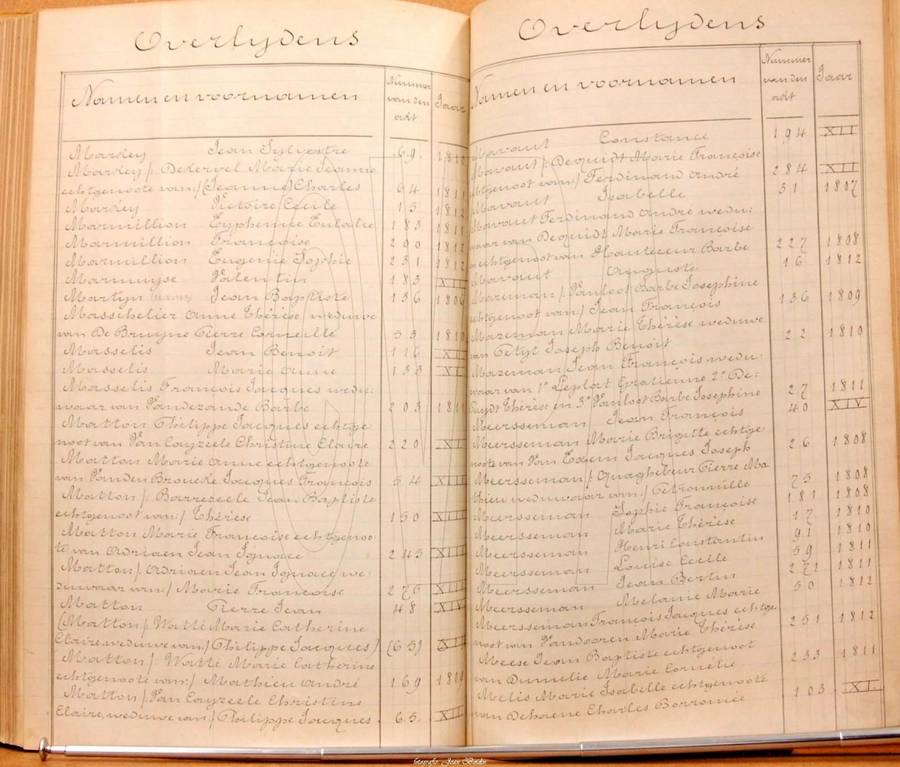 Overlydens
Namen en voornamen
Nummer van den adt
Jaar
Mardey Jean Sylvestre 69. 1811
Mardey / Dedervel Marie Jeanne
echtgenoot van / (Jeanne) Charles 64 1811
Mardey Victoire Cecile 15 1812
Marmillion Euphemie Eulalie 183 1811
Marmillion Françoise 290 1811
Marmillion Eugenie Sophie 231 1812
Marmuyse Valentin 183
Martyn Jean Baptiste 136 1806
Masschelier Anne Thérèse, weduwe
van De Bruyne Pierre Corneille 53 1810
Masselis Jean Benoit 116
Masselis Marie Anne 133
Masselis François Jacques wedu-
waar van Vandezande Barbe 203 1811
Matton Philippe Jacques echtge-
noot van Van Cayzeele Christine Claire 220
Matton Marie Anne echtgenoote
van Vanden Broucke Jacques François 54
Matton / Barrezeele Jean Baptiste
echtgenoot van / Thérèse 150
Matton Marie Françoise echtgenoo-
te van Adriaen Jean Ignace 245
Matton / Adriaen Jean Ignace we-
duwaar van / Marie Françoise 276
Matton Pierre Jean 48
(Matton / Wallé Marie Catherine
Claire, weduwe van / Philippe Jacques) (65)
Matton / Wallé Marie Catherine
echtgenoote van / Mathieu André 169 1810
Matton / Van Cayzeele Christine
Claire, weduwe van / Philippe Jacques 65.
Overlydens
Namen en voornamen
Nummer van den adt
Jaar
Mavaut Constance 194 XII
Mavaut / Dequidt Marie Françoise
echtgenoot van / Ferdinand André 284 XII
Mavaut Isabelle 31 1807
Mavaut Ferdinand André wedu-
waar van Dequidt Marie Françoise
echtgenoot van Hauteceur Barbe 227 1808
Mavaut Auguste 16 1812
Mazeman / Vanloot Barbe Josephine
echtgenoot van / Jean François 136 1809
Mazeman Marie Thérèse weduwe
van Joseph Benoit 22 1810
Mazeman Jean François wedu-
waar van 1° Leplat Gratienne 2° De-
Thérèse en 3° Vanloot Barbe Josephine 27 1811
Meersseman Jean François 40 XIV
Meersseman Marie Brigitte echtge-
noote van Van Exem Jacques Joseph 26 1808
Meersseman / Quaghebeur Pierre Ma-
thieu weduwaar van / Petronille 75 1808
Meersseman Sophie Françoise 181 1808
Meersseman Marie Thérèse 17 1810
Meersseman Henri Constantin 91 1810
Meersseman Louise Cecile 59 1811
Meersseman Jean Bertin 272 1811
Meersseman Melanie Marie 50 1812
Meersseman François Jacques echtge-
noot van Vandooren Marie Thérèse 251 1812
Meese Jean Baptiste echtgenoot
van Dumelie Marie Cornelie 233 1811
Melis Marie Isabelle echtgenoote
van Dehaene Charles Borromée 103 XI